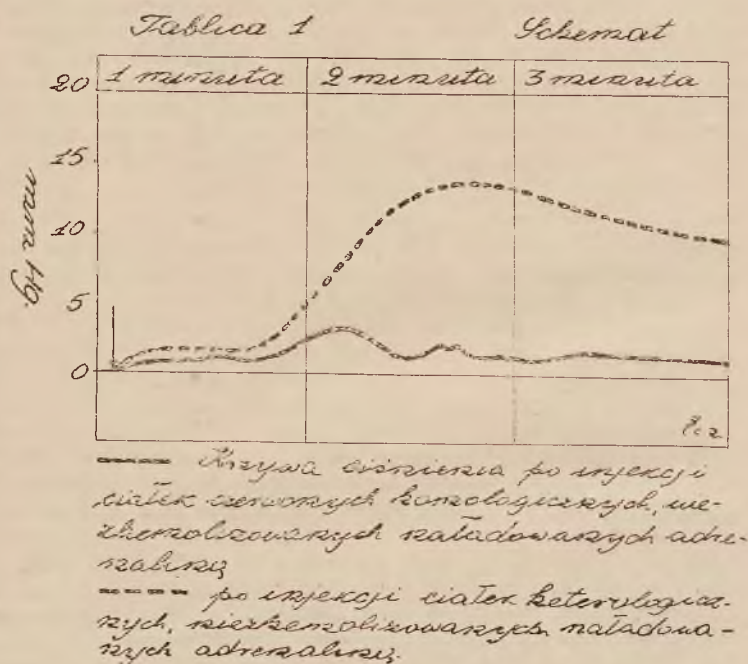 Tablica 1 Schemat
20 1 minuta 2 minuta 3 minuta
15
10
mm Hg.
5
0
Krzywa ciśnienia po injekcji
ciałek czerwonych homologicznych, nie-
zhemolizowanych naładowanych adre-
naliną
po injekcji ciałek heterologicz-
nych, niezhemolizowanych naładowa-
nych adrenaliną.